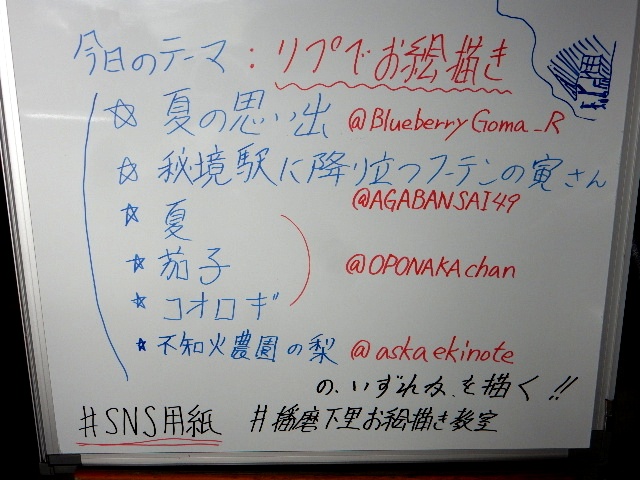 今日のテーマ：リプでお絵描き
☆ 夏の思い出 @BlueberryGoma_R
☆ 秘境駅に降り立つフーテンの寅さん
@AGABANSAI49
☆ 夏
☆ 茄子 @OPONAKAchan
☆ コオロギ
☆ 不知火農園の梨 @askaekinote
の、いずれかを描く!!
#SNS用紙 #播磨下里お絵描き教室